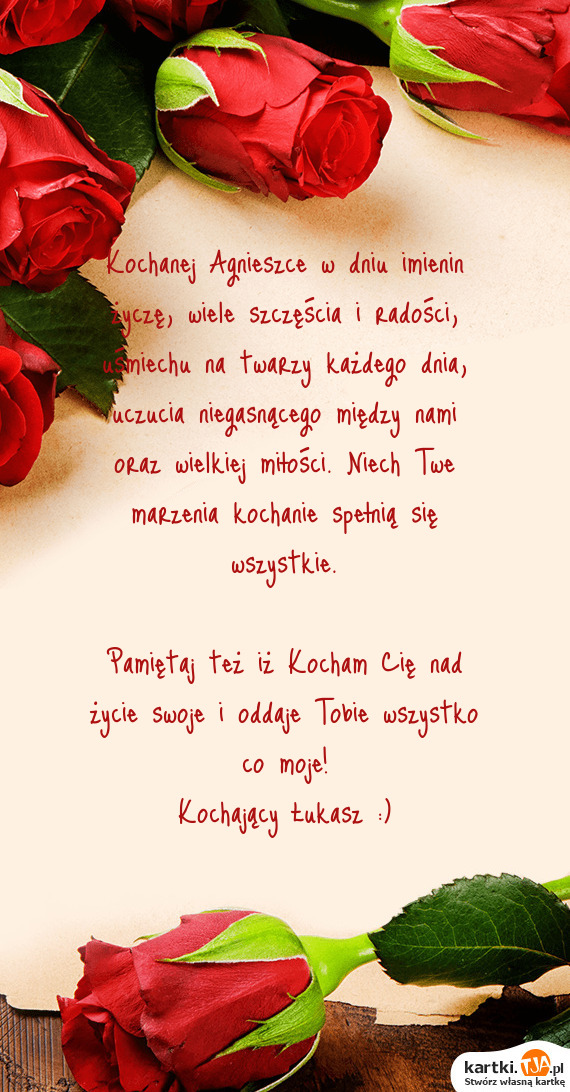 Kochanej Agnieszce w dniu imienin
życzę, wiele szczęścia i radości,
uśmiechu na twarzy każdego dnia,
uczucia niegasnącego między nami
oraz wielkiej miłości. Niech Twe
marzenia kochanie spełnią się
wszystkie.
Pamiętaj też iż Kocham Cię nad
życie swoje i oddaje Tobie wszystko
co moje!
Kochający Łukasz :)
kartki.TJA.pl
Stwórz własną kartkę